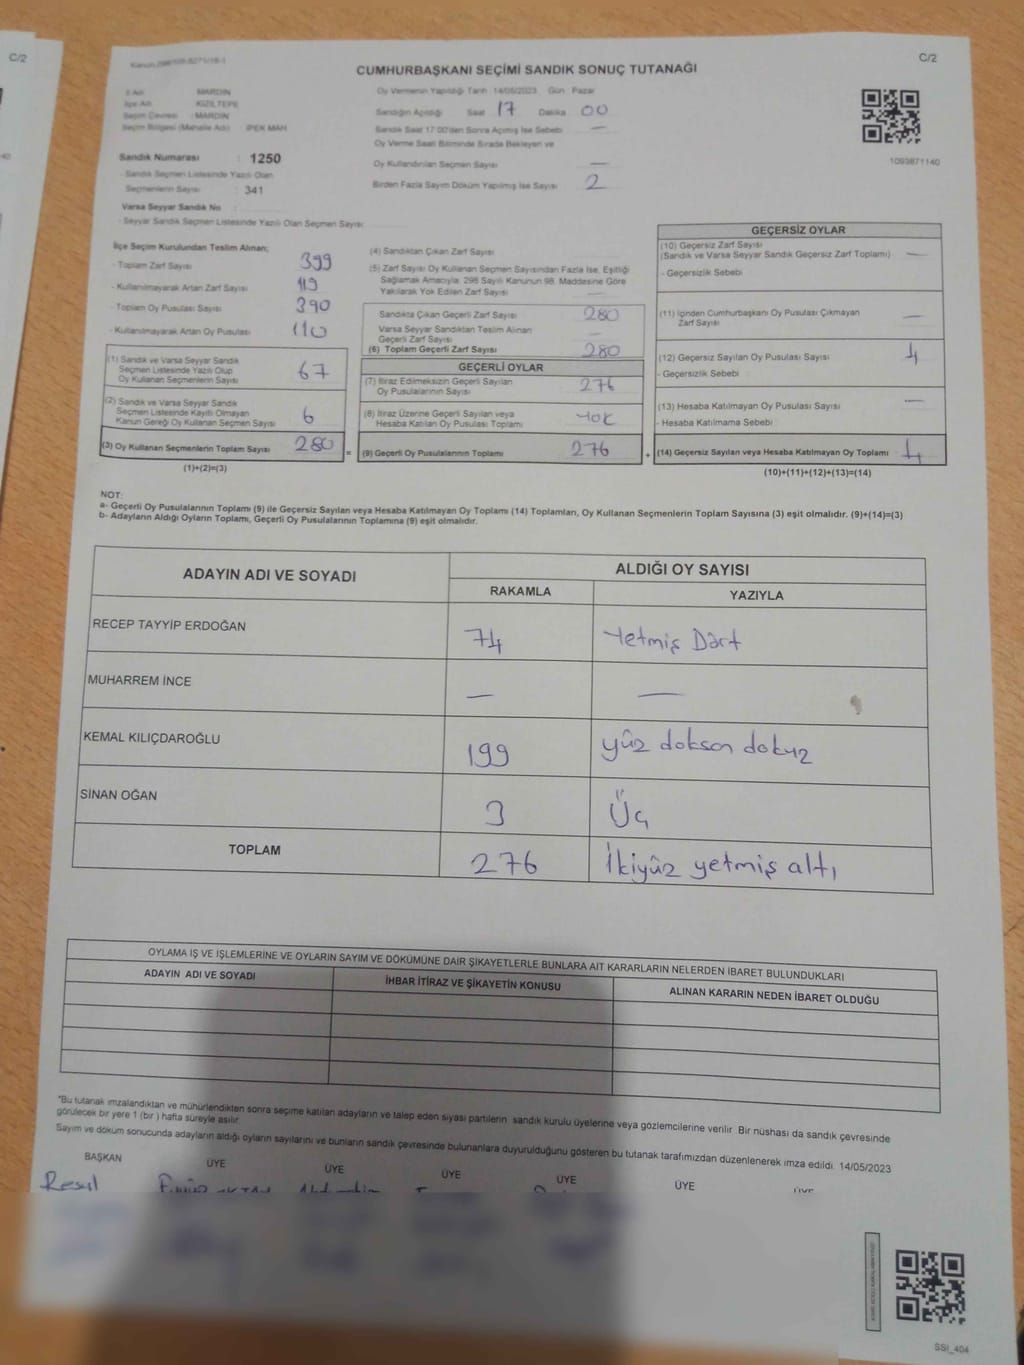 C/2
C/2
CUMHURBAŞKANI SEÇİMİ SANDIK SONUÇ TUTANAĞI
İl Adı MARDİN
İlçe Adı KIZILTEPE
Seçim Çevresi : MARDİN
Seçim Bölgesi (Mahalle Adı) İPEK MAH
Sandık Numarası : 1250
- Sandık Seçmen Listesinde Yazılı Olan
Seçmenlerin Sayısı : 341
Varsa Seyyar Sandık No
- Seyyar Sandık Seçmen Listesinde Yazılı Olan Seçmen Sayısı
Oy Vermenin Yapıldığı Tarih 14/05/2023 Gün Pazar
Sandığın Açıldığı Saat 17 Dakika 00
Sandık Saat 17:00'den Sonra Açılmış İse Sebebi —
Oy Verme Saati Bitiminde Sırada Bekleyen ve
Oy Kullandırılan Seçmen Sayısı —
Birden Fazla Sayım Döküm Yapılmış İse Sayısı 2
1093871140
İlçe Seçim Kurulundan Teslim Alınan;
- Toplam Zarf Sayısı 399
- Kullanılmayarak Artan Zarf Sayısı 119
- Toplam Oy Pusulası Sayısı 390
- Kullanılmayarak Artan Oy Pusulası 110
(1) Sandık ve Varsa Seyyar Sandık
Seçmen Listesinde Yazılı Olup
Oy Kullanan Seçmenlerin Sayısı 67
(2) Sandık ve Varsa Seyyar Sandık
Seçmen Listesinde Kayıtlı Olmayan
Kanun Gereği Oy Kullanan Seçmen Sayısı 6
(3) Oy Kullanan Seçmenlerin Toplam Sayısı 280
(1)+(2)=(3)
(4) Sandıktan Çıkan Zarf Sayısı
(5) Zarf Sayısı Oy Kullanan Seçmen Sayısından Fazla İse, Eşitliği
Sağlamak Amacıyla; 298 Sayılı Kanunun 98. Maddesine Göre
Yakılarak Yok Edilen Zarf Sayısı
Sandıkta Çıkan Geçerli Zarf Sayısı 280
Varsa Seyyar Sandıktan Teslim Alınan
Geçerli Zarf Sayısı —
(6) Toplam Geçerli Zarf Sayısı 280
GEÇERLİ OYLAR
(7) İtiraz Edilmeksizin Geçerli Sayılan
Oy Pusulalarının Sayısı 276
(8) İtiraz Üzerine Geçerli Sayılan veya
Hesaba Katılan Oy Pusulası Toplamı Yok
=
(9) Geçerli Oy Pusulalarının Toplamı 276
+
GEÇERSİZ OYLAR
(10) Geçersiz Zarf Sayısı
(Sandık ve Varsa Seyyar Sandık Geçersiz Zarf Toplamı) —
- Geçersizlik Sebebi
(11) İçinden Cumhurbaşkanı Oy Pusulası Çıkmayan
Zarf Sayısı —
(12) Geçersiz Sayılan Oy Pusulası Sayısı 4
- Geçersizlik Sebebi
(13) Hesaba Katılmayan Oy Pusulası Sayısı —
- Hesaba Katılmama Sebebi
(14) Geçersiz Sayılan veya Hesaba Katılmayan Oy Toplamı 4
(10)+(11)+(12)+(13)=(14)
NOT:
a- Geçerli Oy Pusulalarının Toplamı (9) ile Geçersiz Sayılan veya Hesaba Katılmayan Oy Toplamı (14) Toplamları, Oy Kullanan Seçmenlerin Toplam Sayısına (3) eşit olmalıdır. (9)+(14)=(3)
b- Adayların Aldığı Oyların Toplamı, Geçerli Oy Pusulalarının Toplamına (9) eşit olmalıdır.
ADAYIN ADI VE SOYADI ALDIĞI OY SAYISI
RAKAMLA YAZIYLA
RECEP TAYYİP ERDOĞAN 74 Yetmiş Dört
MUHARREM İNCE — —
KEMAL KILIÇDAROĞLU 199 yüz doksan dokuz
SİNAN OĞAN 3 Üç
TOPLAM 276 İkiyüz yetmiş altı
OYLAMA İŞ VE İŞLEMLERİNE VE OYLARIN SAYIM VE DÖKÜMÜNE DAİR ŞİKAYETLERLE BUNLARA AİT KARARLARIN NELERDEN İBARET BULUNDUKLARI
ADAYIN ADI VE SOYADI İHBAR İTİRAZ VE ŞİKAYETİN KONUSU ALINAN KARARIN NEDEN İBARET OLDUĞU
*Bu tutanak imzalandıktan ve mühürlendikten sonra seçime katılan adayların ve talep eden siyasi partilerin sandık kurulu üyelerine veya gözlemcilerine verilir. Bir nüshası da sandık çevresinde
görülecek bir yere 1 (bir ) hafta süreyle asılır.
Sayım ve döküm sonucunda adayların aldığı oyların sayılarını ve bunların sandık çevresinde bulunanlara duyurulduğunu gösteren bu tutanak tarafımızdan düzenlenerek imza edildi. 14/05/2023
BAŞKAN ÜYE ÜYE ÜYE ÜYE ÜYE ÜYE
Resul
SSI_404